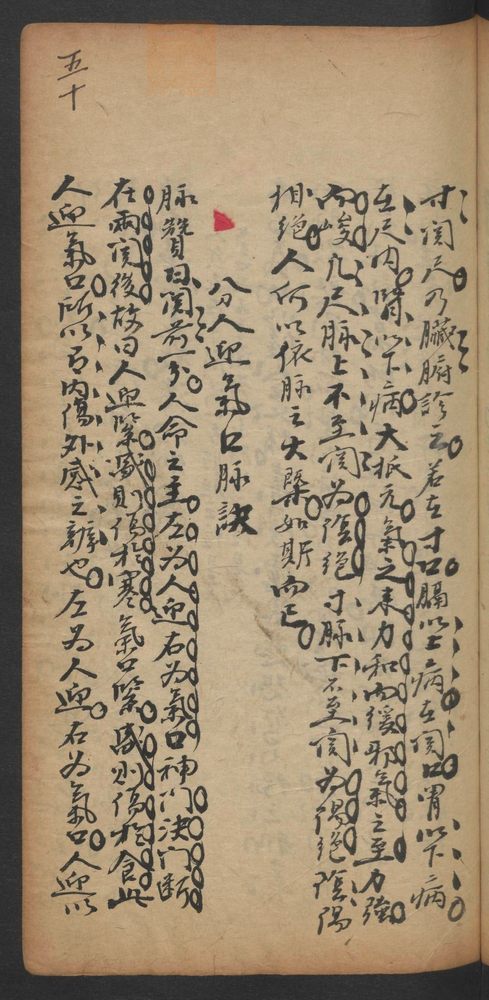 五十
寸関尺乃臟腑診之若在寸口膈以上病在関口胃以下病
在尺内腎以下病大抵元氣之来力和而緩邪氣之至力強
而峻凡尺脉上不至関為陰絕寸脉下不至関為陽絕陰陽
相絕人何以依脉之大槩如斯而已
八分人迎氣口脉訣
脉贊曰関前一分人命之主左為人迎右為氣口神门決断
在兩関後故曰人迎緊盛則傷於寒氣口緊盛則傷於食此
人迎氣口所以為内傷外感之辨也左為人迎右為氣口人迎以